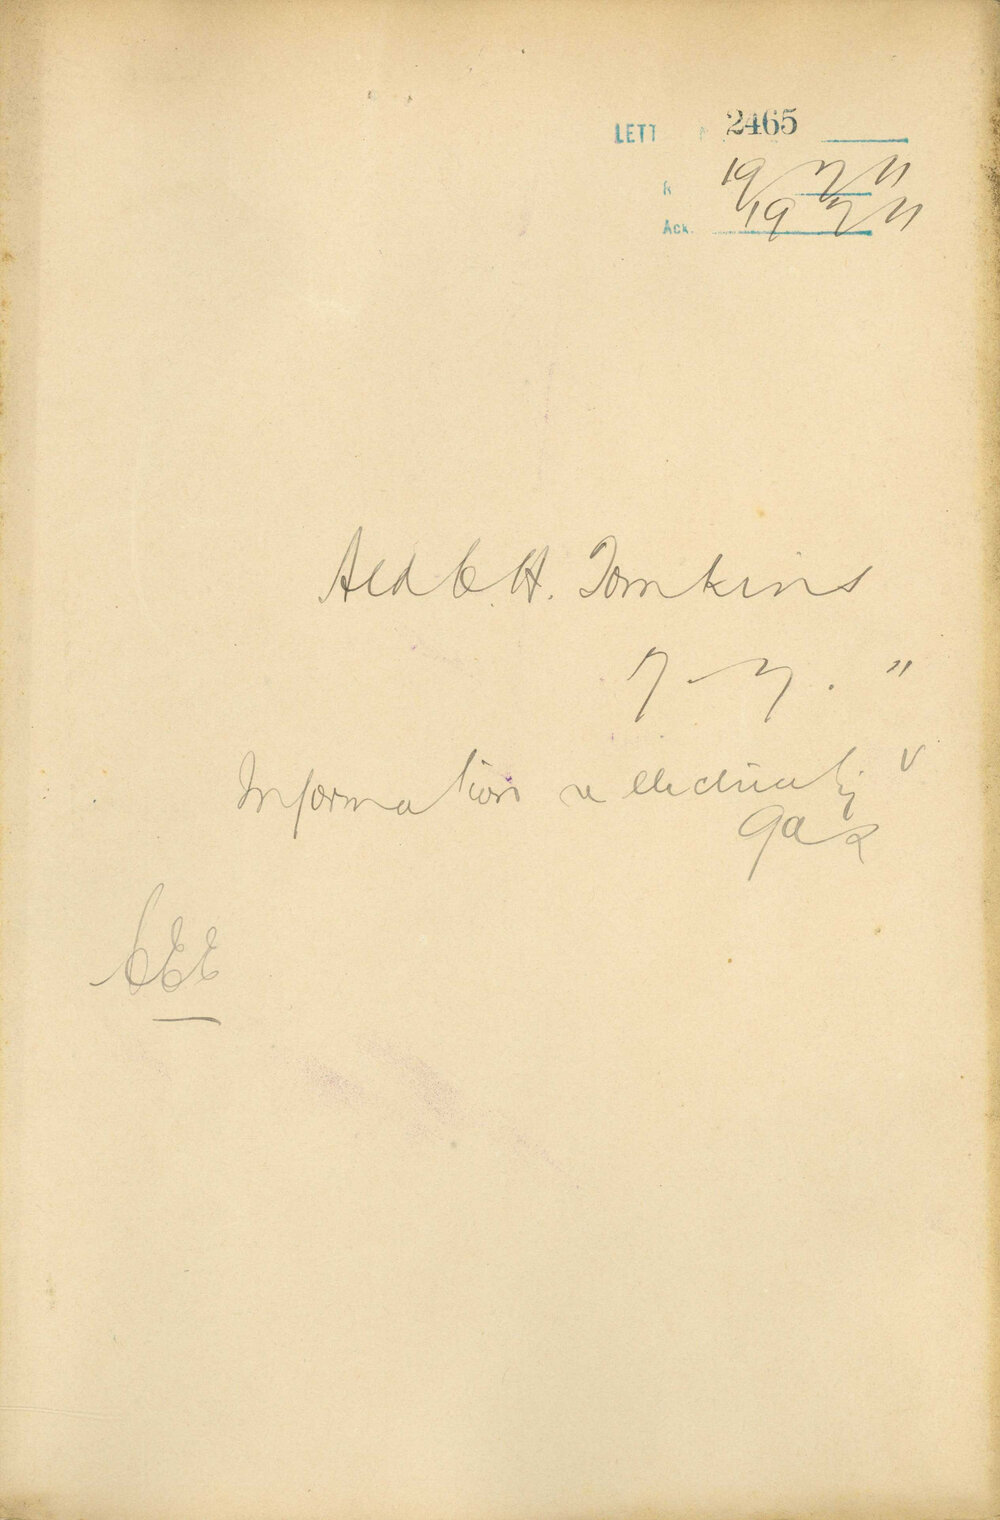 LETT 2465
R 19 7 11
Ack. 19 7 11
Ald C. H. Tomkins
7-7.11
Information re electricity v
gas
CEE